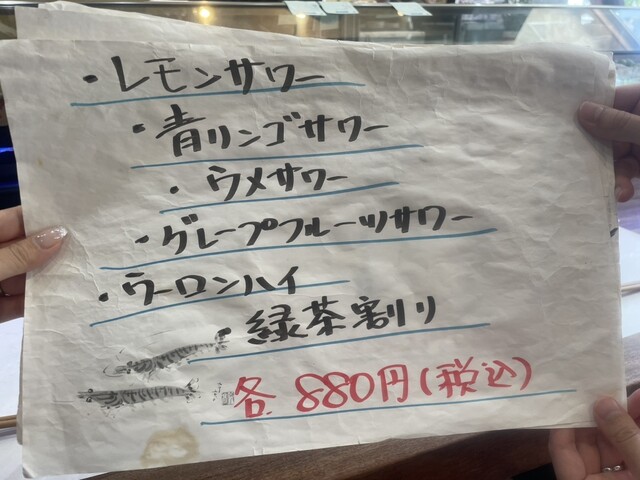 ・レモンサワー
・青リンゴサワー
・ウメサワー
・グレープフルーツサワー
・ウーロンハイ
・緑茶割り
各 880円(税込)